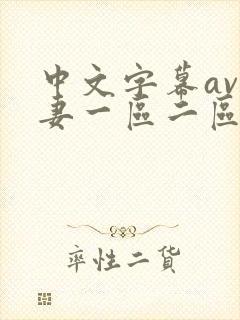 中文字幕av
妻一區二區
率性二貨